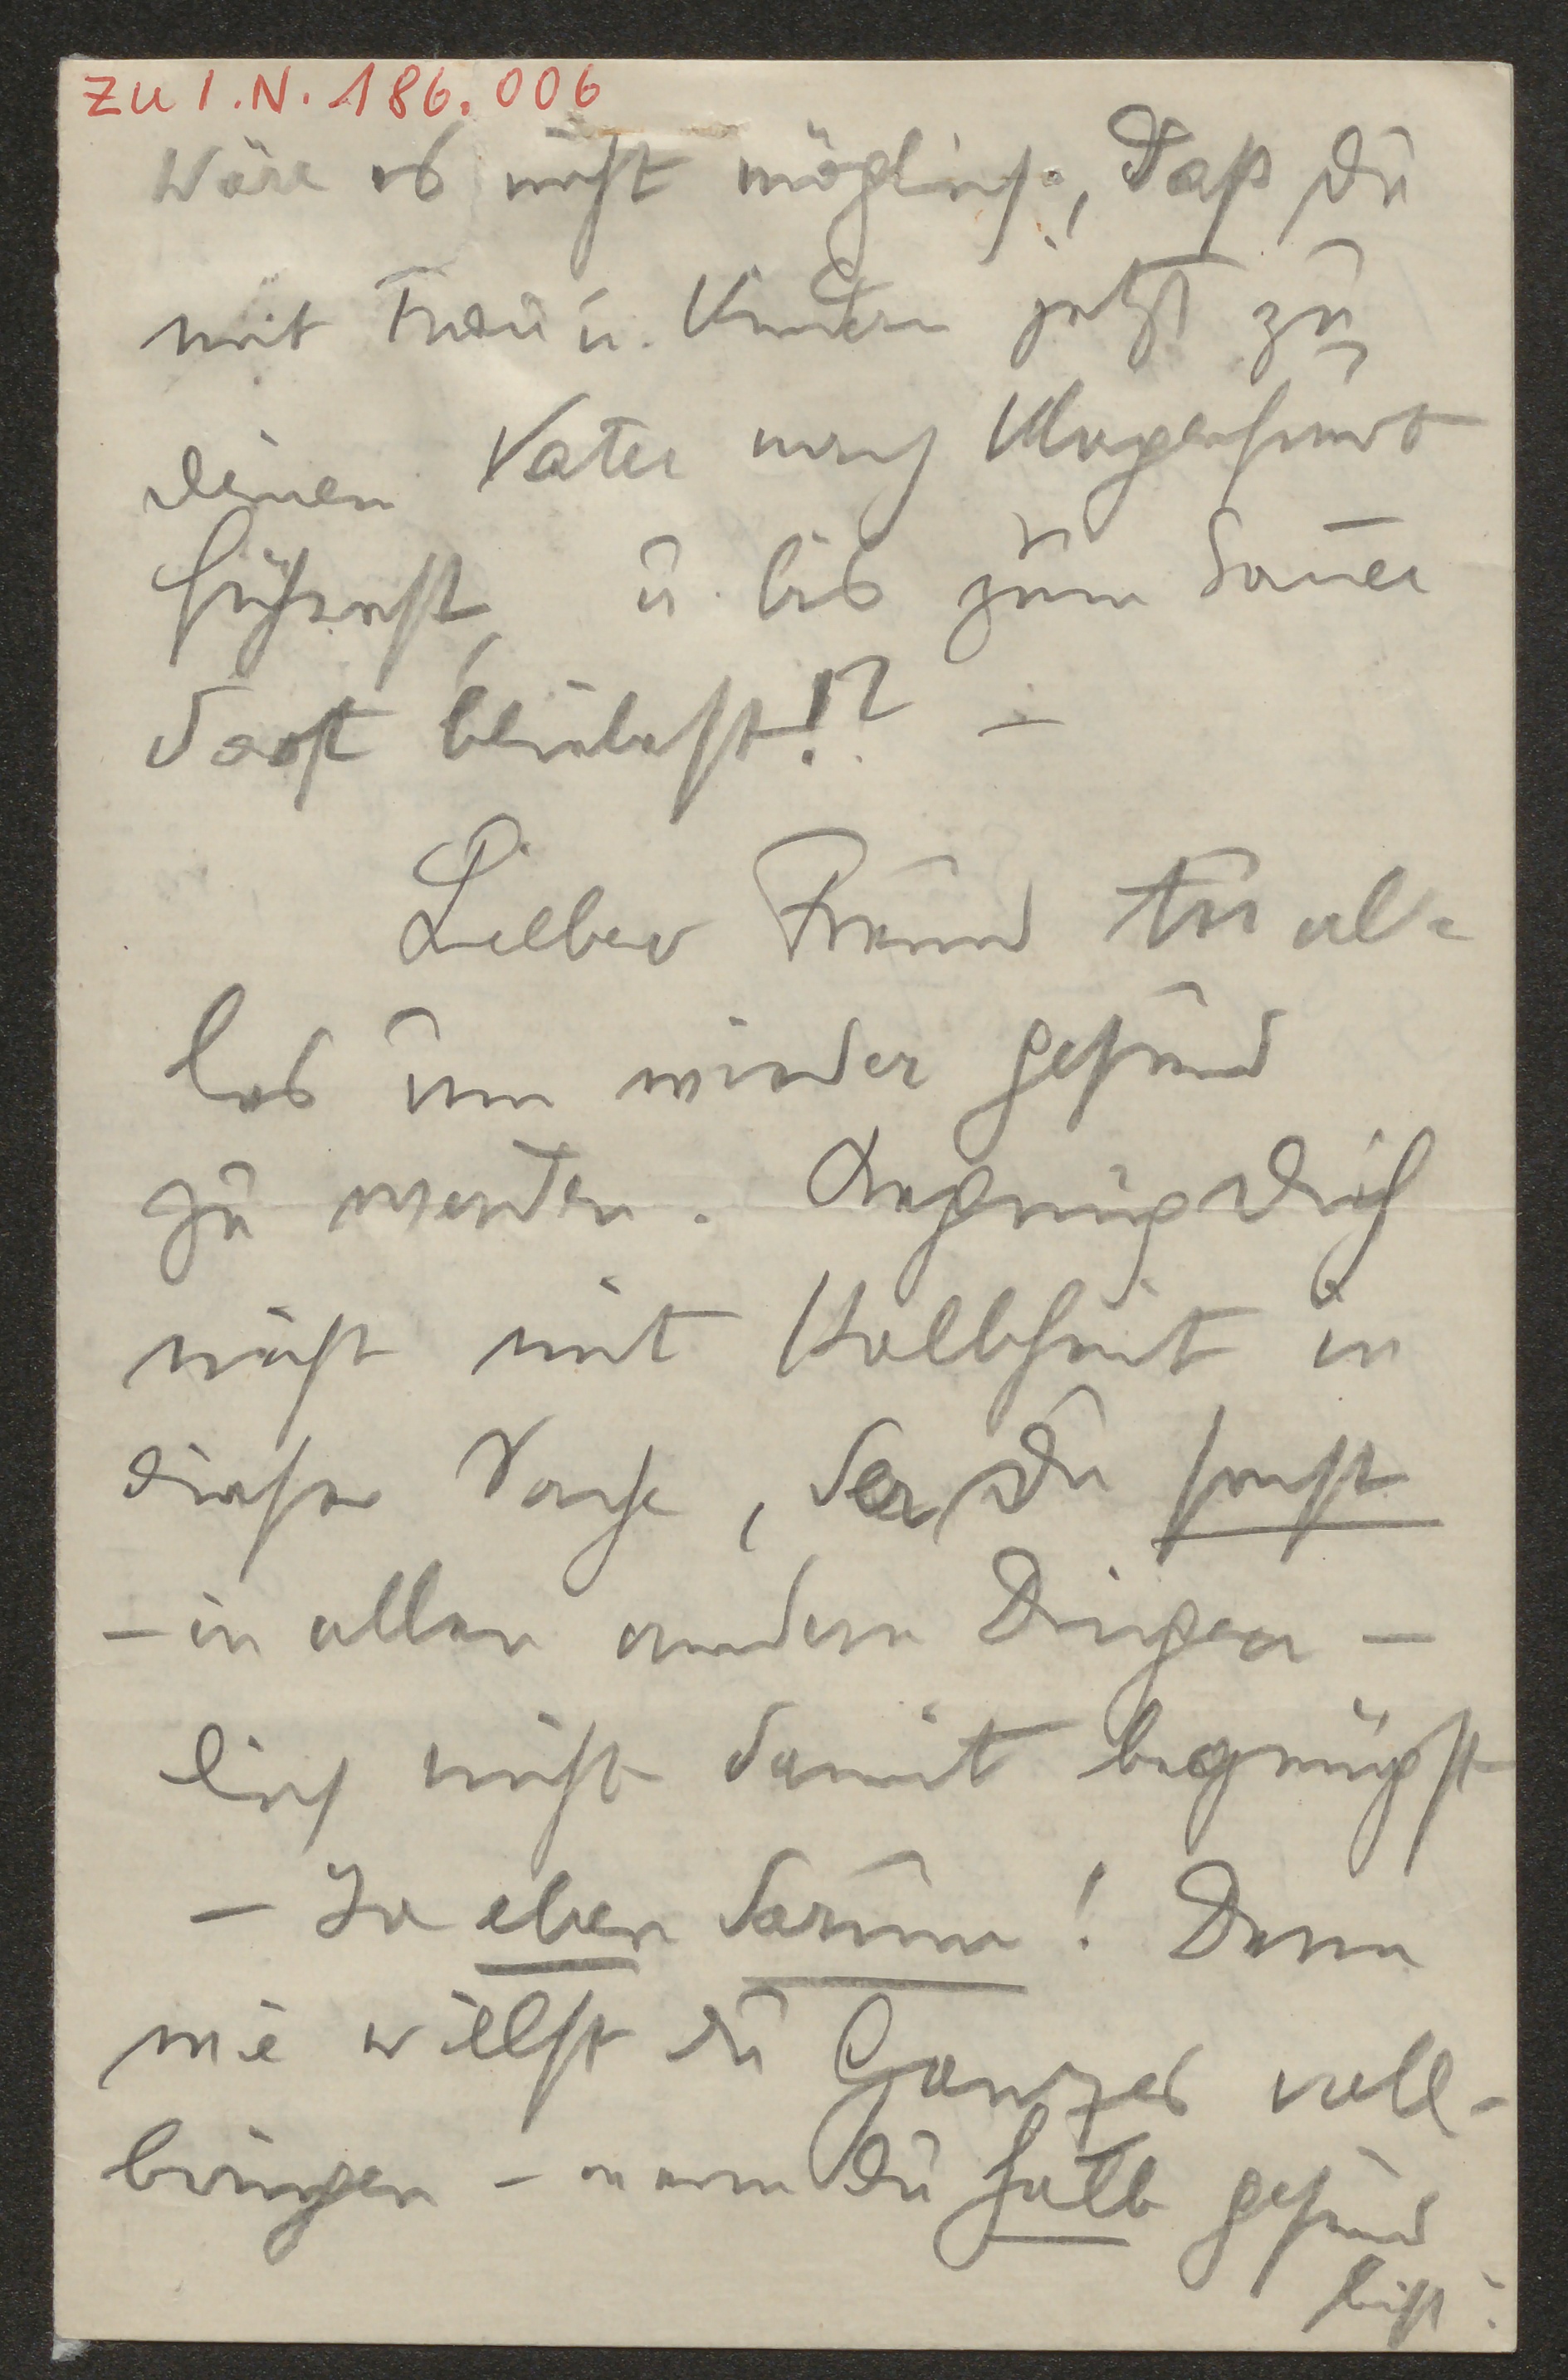 ZU I.N. 186.006
Wäre es nicht möglich, daß Du
mit Frau u. Kindern jetzt zu
deinem Vater nach Klagenfurt
führest, u. bis zum
dort bleibest!? –
Lieber Freund tu al-
les um wieder gesund
zu werden. Begnüg dich
nicht mit Halbheit in
dieser Sache, der Du sonst
– in allen andern Dingen –
dich nicht damit begnügst
– Ja eben darum! Denn
wie willst du Ganzes voll-
bringen – wenn Du halb gesund
bist?